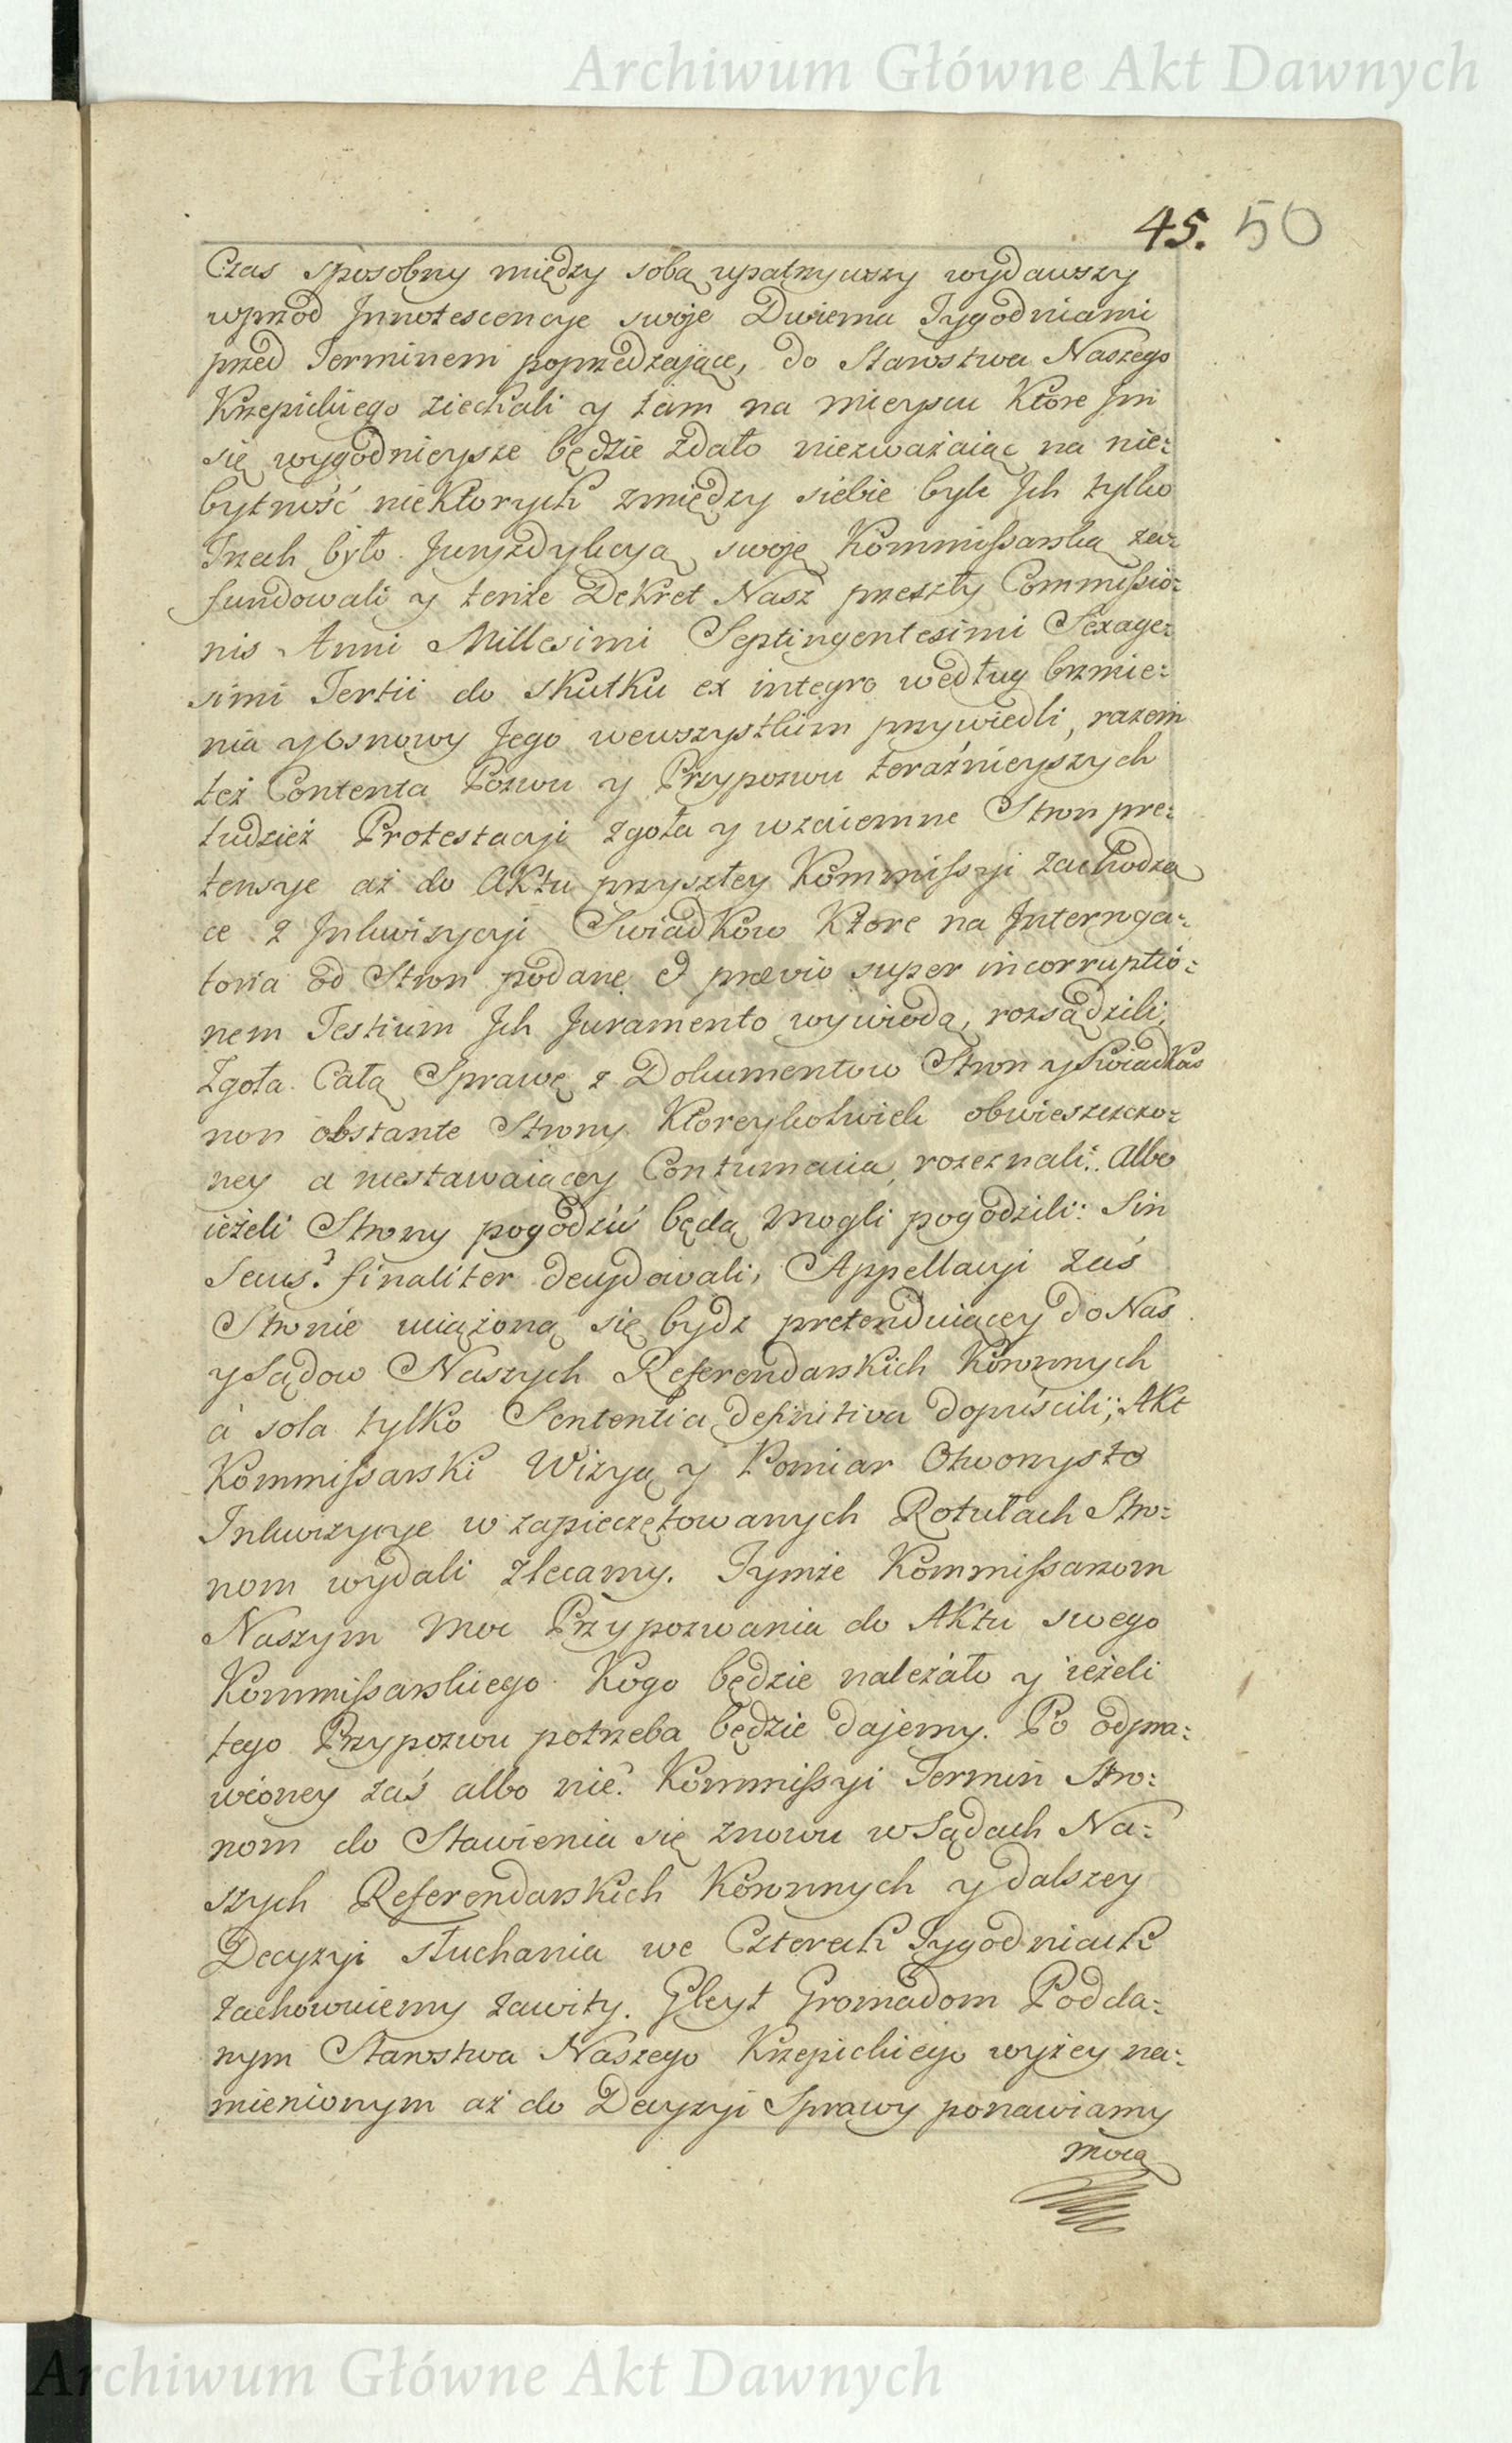 Archiwum Główne Akt Dawnych
45. 50
Czas sposobny między sobą upatrzywszy wydawszy
wprzod Jnnotescencye swoje Dwiema Tygodniami
przed Terminem poprzedzające, do Starostwa Naszego
Krzepickiego ziechali y tam na mieyscu Które Jm
się wygodnieysze będzie zdało niezważaiąc na nie:
bytność niektorych zmiędzy siebie byle Jch tylko
Trzech było Juryzdykcyą swoję Kommissarską za:
fundowali y tenże Dekret Nasz przeszły Commissio:
nis Anni Millesimi Septingentesimi Sexage:
simi Tertii do skutku ex integro według brzmie:
nia y Osnowy Jego wewszystkim przywiedli, razem
też Contenta Pozwu y Przypozwu teraźnieyszych
tudzież Protestacyi zgoła y wzaiemne Stron pre:
tensye aż do Aktu przyszłey Kommissyi zachodzą
ce z Jnkwizycyi Swiadków Które na Jnterroga:
toria od Stron podane & prævio super incorruptio:
nem Testium Jch Juramento wywiodą, rozsądzili,
Zgoła Całą Sprawę z Dokumentow Stron y Swiadków
non obstante Strony Ktoreykolwiek obwieszczo:
ney a niestawaiącey Contumacia, rozeznali: albo
ieżeli Strony pogodzić będą mogli pogodzili: Sin
Secus? finaliter decydowali, Appellacyi zaś
Stronie uciążoną się bydz pretenduiącey do Nas
y Sądow Naszych Referendarskich Koronnych
à sola tylko Sententia definitiva dopuścili; Akt
Kommissarski Wizyą y Pomiar Otworzysto
Jnkwizycye w zapieczętowanych Rotułach Stro:
nom wydali zlecamy. Tymże Kommissarzom
Naszym moc Przypozwania do Aktu swego
Kommissarskiego Kogo będzie należało y ieżeli
tego Przypozwu potrzeba będzie dajemy. Po odpra:
wioney zaś albo nie? Kommissyi Termin Stro:
nom do Stawienia się znowu w Sądach Na:
szych Referendarskich Koronnych y dalszey
Decyzyi słuchania we Czterech Tygodniach
zachowuiemy zawity. Gleyt Gromadom Podda:
nym Starostwa Naszego Krzepickiego wyżey na:
mienionym aż do Decyzyi Sprawy ponawiamy
mocą
Archiwum Główne Akt Dawnych